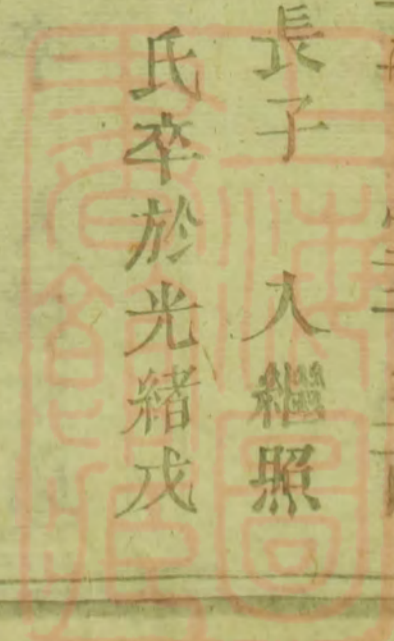 長子 入繼照
氏卒於光緒戊